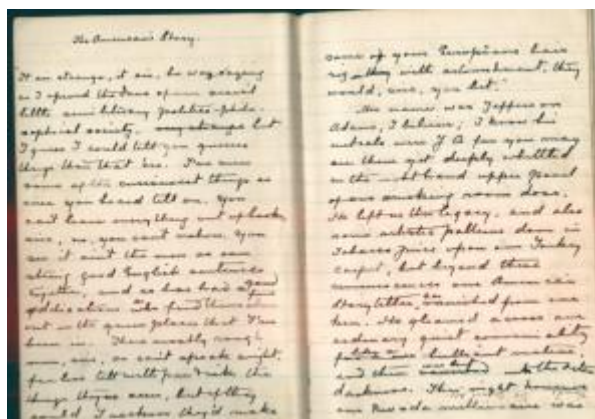 The American's Story.
"It air strange, it air, he was saying
as I opened the door of our social
little semi literary
society. but
I guess I could tell you queerer
things than that 'ere. I've seen
some of the things as
ever you heard tell on. You
can't learn everything out of books,
sirs, no, you can't nohow. You
see it ain't the men as can
string good English sentences
together, and as has had a good
eddication as find themselves
out in the queer places that I've
been in. They're mostly rough
men, sirs, as can't speak aright,
far less tell with pen & ink the
things they've seen, but if they
could I reckon they'd make
some of your Europeans hair
riz with astonishment, they
would, sirs, you bet."
His name was Jefferson
Adams, I believe; I know his
initials were J A for you may
see them yet deeply whittled
on the right hand upper panel
of our smoking room door.
He left us this legacy, and also
some artistic patterns done in
tobacco juice upon our Turkey
carpet, but beyond these
reminiscences our American
Storyteller has vanished from our
ken. He gleamed across our
ordinary quiet conviviality
like some brilliant meteor,
and then was lost in the outer
darkness. That night however
our Nevada was